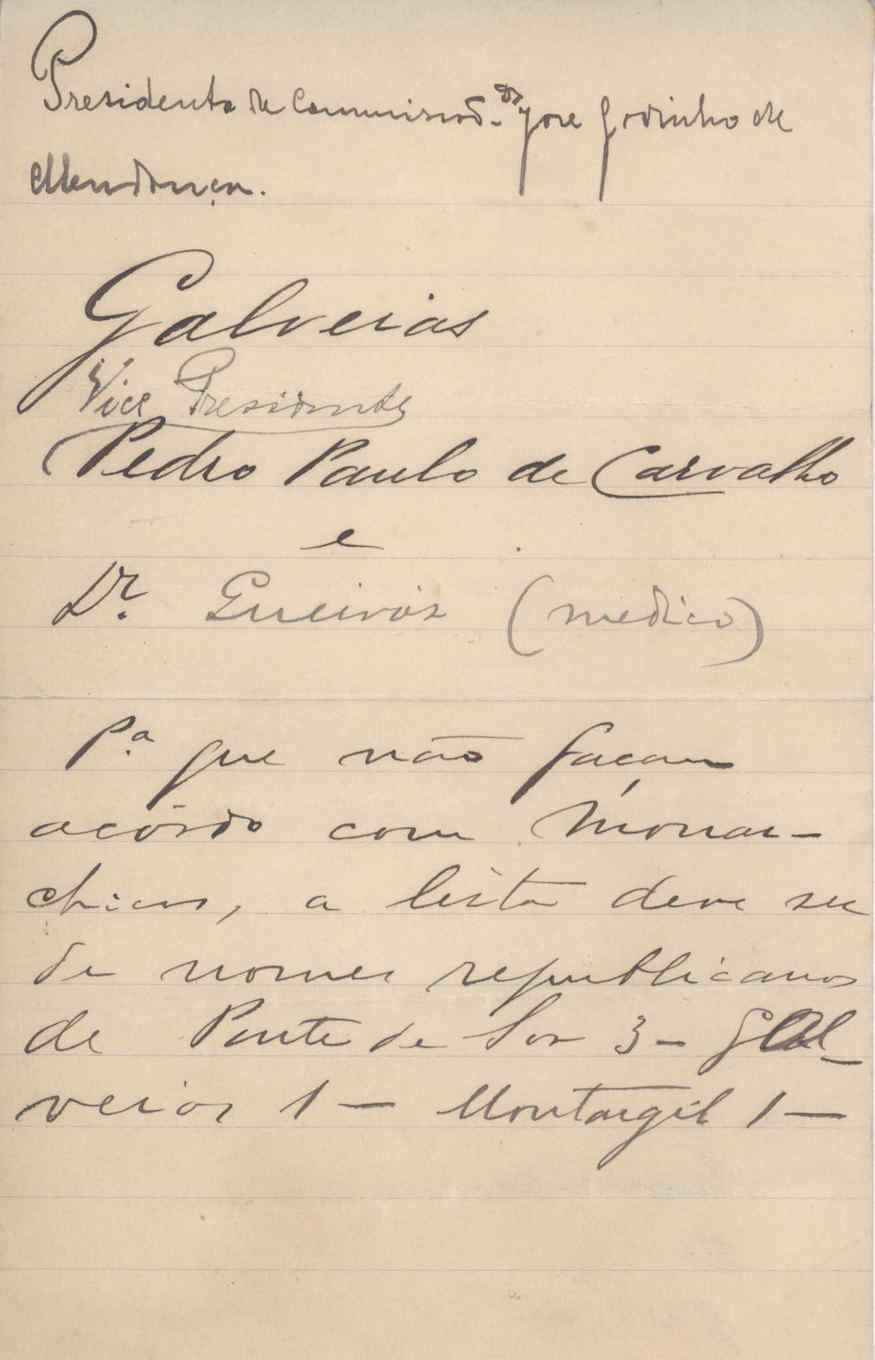 Presidente da Commissão - Dr. José Godinho de
Mendonça.
Galveias
Vice Presidente
Pedro Paulo de Carvalho
e
Dr. Queirós (medico)
Pª que não façam
acôrdo com Monar-
chicos, a lista deve ser
de nomes republicanos
de Ponte de Sor 3 - Gal-
veias 1 - Montargil 1 -